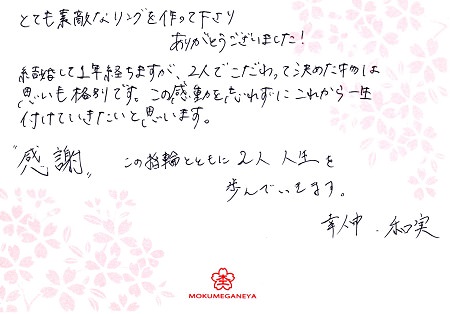 とても素敵なリングを作って下さり
ありがとうございました!
結婚して1年経ちますが、2人でこだわって決めた物は
思いも格別です。この感動を忘れずにこれから一生
付けていきたいと思います。
"感謝" この指輪とともに2人人生を
歩んでいきます。
和実
MOKUMEGANEYA